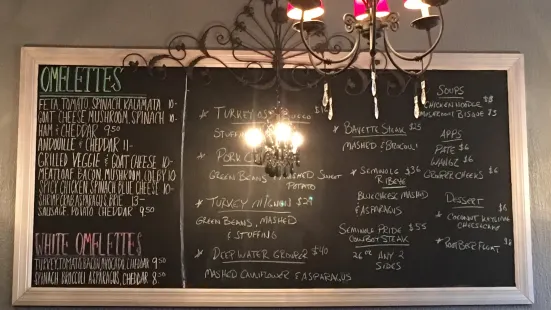 OMELETTES
FETA, TOMATO, SPINACH, KALAMATA 10-
GOAT CHEESE, MUSHROOM, SPINACH 10-
HAM & CHEDDAR 9.50
ANDOUILLE & CHEDDAR 11-
GRILLED VEGGIE & GOAT CHEESE 10-
MEATLOAF, BACON, MUSHROOM, COLBY 10
SPICY CHICKEN, SPINACH, BLUE CHEESE 10-
SHRIMP, ASPARAGUS, BRIE 13-
SAUSAGE, POTATO, CHEDDAR 9.50
WHITE OMELETTES
TURKEY, TOMATO, BACON, AVOCADO, CHEDDAR 9.50
SPINACH, BROCCOLI, ASPARAGUS, CHEDDAR 8.50
* TURKEY
STUFFING
* PORK
GREEN BEANS MASHED SWEET
POTATO
* TURKEY $29
GREEN BEANS, MASHED
& STUFFING
* DEEP WATER GROUPER $40
MASHED CAULIFLOWER & ASPARAGUS
* BAVETTE STEAK $25
MASHED & BROCCOLI
* SEMINOLE $36
RIBEYE
BLUE CHEESE MASHED
& ASPARAGUS
SEMINOLE PRIDE $55
COWBOY STEAK
26oz ANY 2
SIDES
SOUPS
CHICKEN NOODLE
MUSHROOM BISQUE
APPS
PATE $6
WANGZ $6
CHEESES $6
DESSERT
* COCONUT KEY LIME $6
CHEESECAKE
* ROOT BEER FLOAT